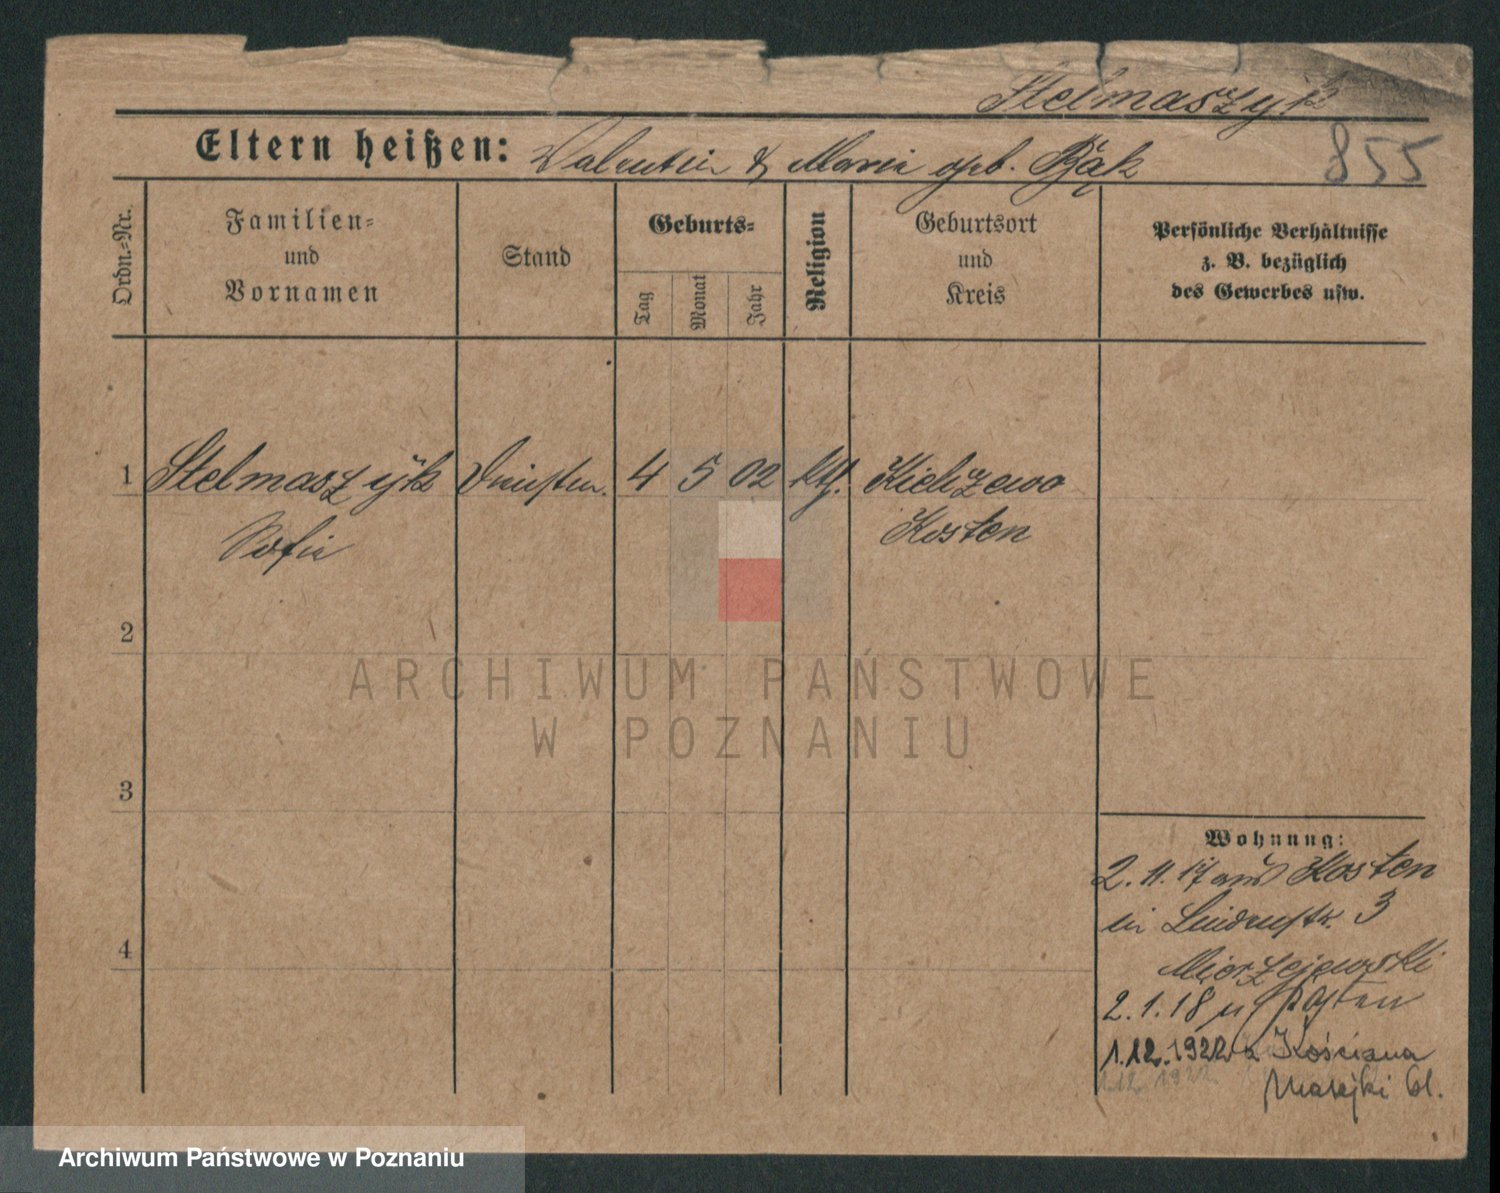 Stelmaszyk
Eltern heißen: Valentin & Marie geb. Bąk
855
Ordn.-Nr.
Familien-
und
Vornamen
Stand
Geburts-
Tag
Monat
Jahr
Religion
Geburtsort
und
Kreis
Persönliche Verhältnisse
z. B. bezüglich
des Gewerbes usw.
1 Stelmaszyk 4 5 02 kth. Kielczewo
Sofie Kosten
2
3
4
Wohnung:
2.11.17 aus Kosten
in Lindenstr. 3
Mierzejewski
2.1.18 n/ Kosten
1.12.1922 z Kościana
1.12.1922
Matejki 61.
ARCHIWUM PAŃSTWOWE
W POZNANIU
Archiwum Państwowe w Poznaniu